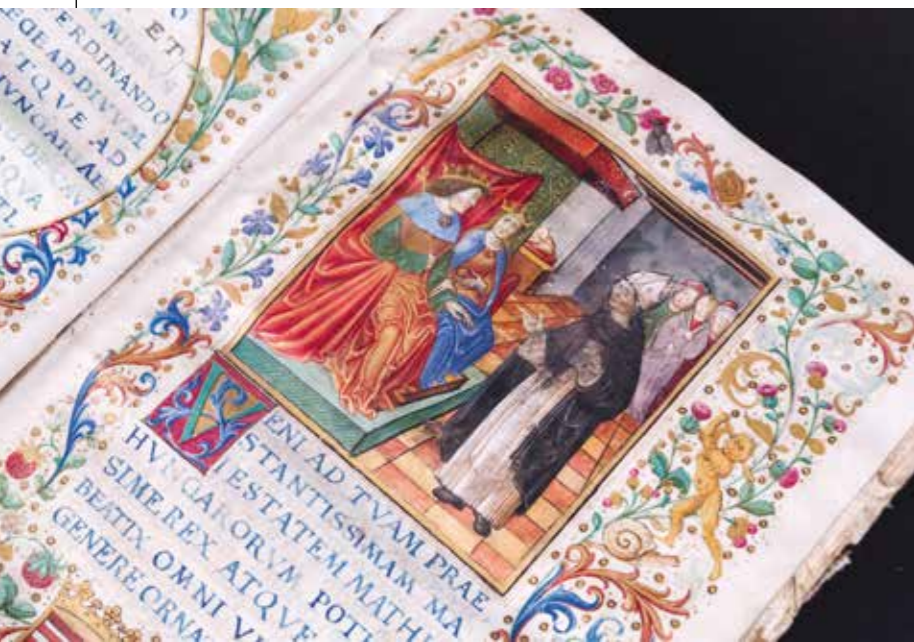 ET
ERDINANDO
EGE AD DIVVM
ATQVE AD
VNGARIAE
VENI AD TVAM PRAE
STANTISSIMAM MA
IESTATEM MATHI
HVNGARORVM POT
SIME REX ATQVE
BEATIX OMNI VI
GENERE ORNA